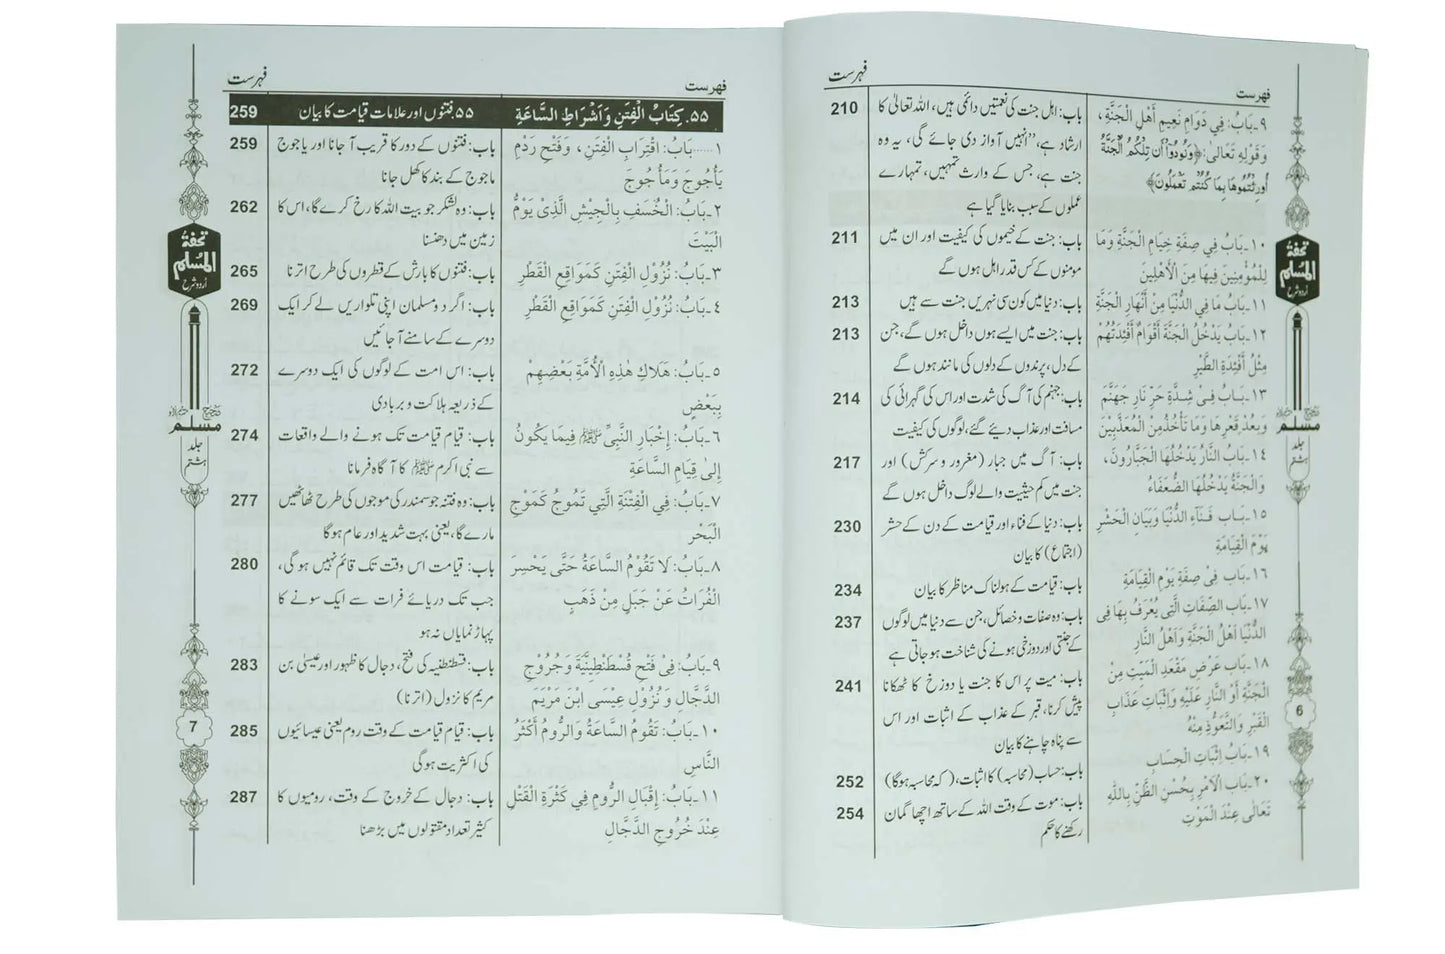 فہرست
فهرست
۹۔بَابُ: فِي دَوَامِ نَعِيمِ أَهْلِ الْجَنَّةِ،
وَقَوْلِهِ تَعَالىٰ: ﴿وَنُودُوٓا۟ أَن تِلْكُمُ الْجَنَّةُ
أُورِثْتُمُوهَا بِمَا كُنتُمْ تَعْمَلُونَ﴾
باب: اہل جنت کی نعمتیں دائمی ہیں، اللہ تعالیٰ کا
ارشاد ہے، ’’انہیں آواز دی جائے گی، یہ وہ
جنت ہے، جس کے وارث تمہیں، تمہارے
عملوں کے سبب بنایا گیا ہے
210
۱۰۔بَابُ فِي صِفَةِ خِيَامِ الْجَنَّةِ وَمَا
لِلْمُؤْمِنِينَ فِيهَا مِنَ الْأَهْلِينَ
باب: جنت کے خیموں کی کیفیت اور ان میں
مومنوں کے کس قدر اہل ہوں گے
211
۱۱۔بَابُ مَا فِي الدُّنْيَا مِنْ أَنْهَارِ الْجَنَّةِ
باب: دنیا میں کون سی نہریں جنت سے ہیں
213
۱۲۔بَابُ يَدْخُلُ الْجَنَّةَ أَقْوَامٌ أَفْئِدَتُهُمْ
مِثْلُ أَفْئِدَةِ الطَّيْرِ
باب: جنت میں ایسے ہوں داخل ہوں گے، جن
کے دل، پرندوں کے دلوں کی مانند ہوں گے
213
۱۳۔بَابُ فِيْ شِدَّةِ حَرِّ نَارِ جَهَنَّمَ
وَبُعْدِ قَعْرِهَا وَمَا تَأْخُذُ مِنَ الْمُعَذَّبِيْنَ
باب: جہنم کی آگ کی شدت اور اس کی گہرائی کی
مسافت اور عذاب دیئے گئے، لوگوں کی کیفیت
214
۱۴۔بَابُ النَّارُ يَدْخُلُهَا الْجَبَّارُونَ،
وَالْجَنَّةُ يَدْخُلُهَا الضُّعَفَاءُ
باب: آگ میں جبار (مغرور و سرکش) اور
جنت میں کم حیثیت والے لوگ داخل ہوں گے
217
۱۵۔بَاب فَنَاءِ الدُّنْيَا وَبَيَانِ الْحَشْرِ
يَوْمَ الْقِيَامَةِ
باب: دنیا کے فناء اور قیامت کے دن کے حشر
(اجتماع) کا بیان
230
۱۶۔بَاب فِيْ صِفَةِ يَوْمِ الْقِيَامَةِ
باب: قیامت کے ہولناک مناظر کا بیان
234
۱۷۔بَاب الصِّفَاتِ الَّتِي يُعْرَفُ بِهَا فِي
الدُّنْيَا أَهْلُ الْجَنَّةِ وَأَهْلُ النَّارِ
باب: وہ صفات و خصائل، جن سے دنیا میں لوگوں
کے جنتی اور دوزخی ہونے کی شناخت ہو جاتی ہے
237
۱۸۔بَاب عَرْضِ مَقْعَدِ الْمَيِّتِ مِنَ
الْجَنَّةِ أَوِ النَّارِ عَلَيْهِ وَإِثْبَاتِ عَذَابِ
الْقَبْرِ وَالتَّعَوُّذِ مِنْهُ
باب: میت پر اس کا جنت یا دوزخ کا ٹھکانا
پیش کرنا، قبر کے عذاب کے اثبات اور اس
سے پناہ چاہنے کا بیان
241
۱۹۔بَابُ إِثْبَاتِ الْحِسَابِ
باب: حساب (محاسبہ) کا اثبات، (کہ محاسبہ ہوگا)
252
۲۰۔بَابُ الْأَمْرِ بِحُسْنِ الظَّنِّ بِاللّٰهِ
تَعَالَى عِنْدَ الْمَوْتِ
باب: موت کے وقت اللہ کے ساتھ اچھا گمان
رکھنے کا حکم
254
تحفۃ
المسلم
اُردو شرح
صحیح
مسلم
جلد
ہشتم
6
فہرست
فهرست
۵۵۔ كِتَابُ الْفِتَنِ وَأَشْرَاطِ السَّاعَةِ
۵۵ فتنوں اور علامات قیامت کا بیان
259
۱......بَابُ: اقْتِرَابِ الْفِتَنِ، وَفَتْحِ رَدْمِ
يَأْجُوجَ وَمَأْجُوجَ
باب: فتنوں کے دور کا قریب آ جانا اور یاجوج
ماجوج کے بند کا کھل جانا
259
۲۔بَابُ: الْخَسَفِ بِالْجَيْشِ الَّذِيْ يَوُمُّ
الْبَيْتَ
باب: وہ لشکر جو بیت اللہ کا رخ کرے گا، اس کا
زمین میں دھنسنا
262
۳۔بَابُ: نُزُوْلِ الْفِتَنِ كَمَوَاقِعِ الْقَطْرِ
باب: فتنوں کا بارش کے قطروں کی طرح اترنا
265
۴۔بَابُ: نُزُوْلِ الْفِتَنِ كَمَوَاقِعِ الْقَطْرِ
باب: اگر دو مسلمان اپنی تلواریں لے کر ایک
دوسرے کے سامنے آ جائیں
269
۵۔بَابُ: هَلَاكِ هٰذِهِ الْأُمَّةِ بَعْضِهِمْ
بِبَعْضٍ
باب: اس امت کے لوگوں کی ایک دوسرے
کے ذریعہ ہلاکت و بربادی
272
۶۔بَابُ: إِخْبَارِ النَّبِيِّ ﷺ فِيمَا يَكُونُ
إِلىٰ قِيَامِ السَّاعَةِ
باب: قیام قیامت تک ہونے والے واقعات
سے نبی اکرم ﷺ کا آگاہ فرمانا
274
۷۔بَابُ: فِي الْفِتْنَةِ الَّتِي تَمُوجُ كَمَوْجِ
الْبَحْر
باب: وہ فتنہ جو سمندر کی موجوں کی طرح ٹھاٹھیں
مارے گا، یعنی بہت شدید اور عام ہوگا
277
۸۔بَابُ: لَا تَقُوْمُ السَّاعَةُ حَتَّى يَحْسِرَ
الْفُرَاتُ عَنْ جَبَلٍ مِنْ ذَهَبٍ
باب: قیامت اس وقت تک قائم نہیں ہو گی،
جب تک دریائے فرات سے ایک سونے کا
پہاڑ نمایاں نہ ہو
280
۹۔بَابُ: فِيْ فَتْحِ قُسْطَنْطِينِيَّةَ وَخُرُوْجِ
الدَّجَّالِ وَنُزُوْلِ عِيْسَى ابْنَ مَرْيَمَ
باب: قسطنطنیہ کی فتح، دجال کا ظہور اور عیسیٰ بن
مریم کا نزول (اترنا)
283
۱۰۔بَابُ: تَقُومُ السَّاعَةُ وَالرُّومُ أَكْثَرُ
النَّاسِ
باب: قیام قیامت کے وقت روم یعنی عیسائیوں
کی اکثریت ہوگی
285
۱۱۔بَابُ: إِقْبَالِ الرُّومِ فِي كَثْرَةِ الْقَتْلِ
عِنْدَ خُرُوجِ الدَّجَّالِ
باب: دجال کے خروج کے وقت، رومیوں کا
کثیر تعداد مقتولوں میں بڑھنا
287
تحفۃ
المسلم
اُردو شرح
صحیح
مسلم
جلد
ہشتم
7